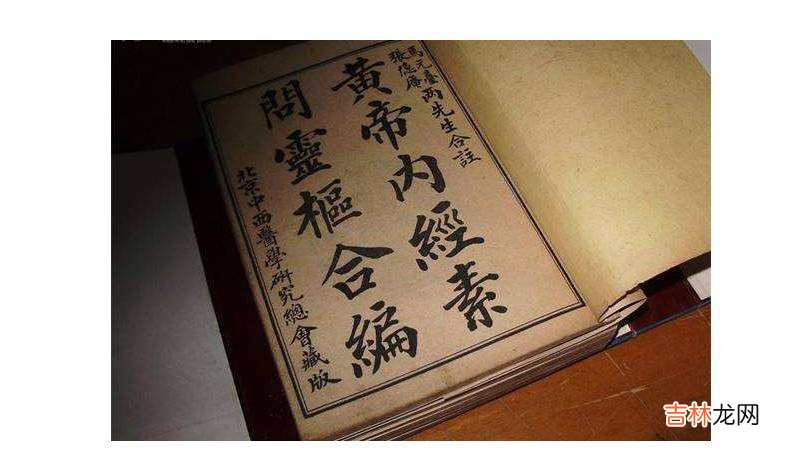 馬元臺
張隱庵
兩先生合註
黃帝內經素
問靈樞合編
北京中西醫學研究總會藏版
吉林龙网